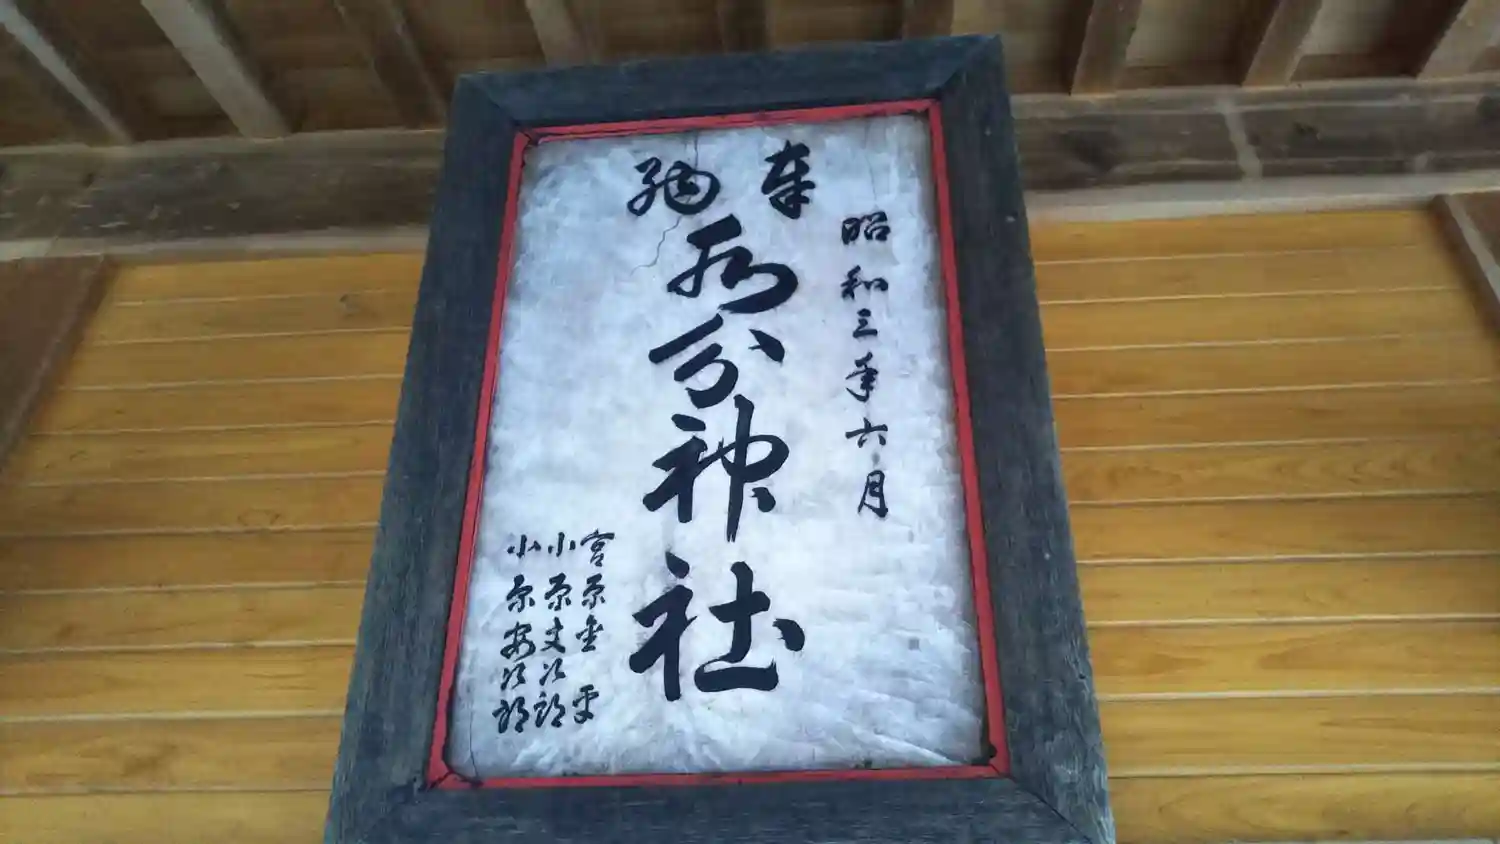 奉納
昭和三年六月
分神社
宮原金平
小原文次郎
小原安次郎